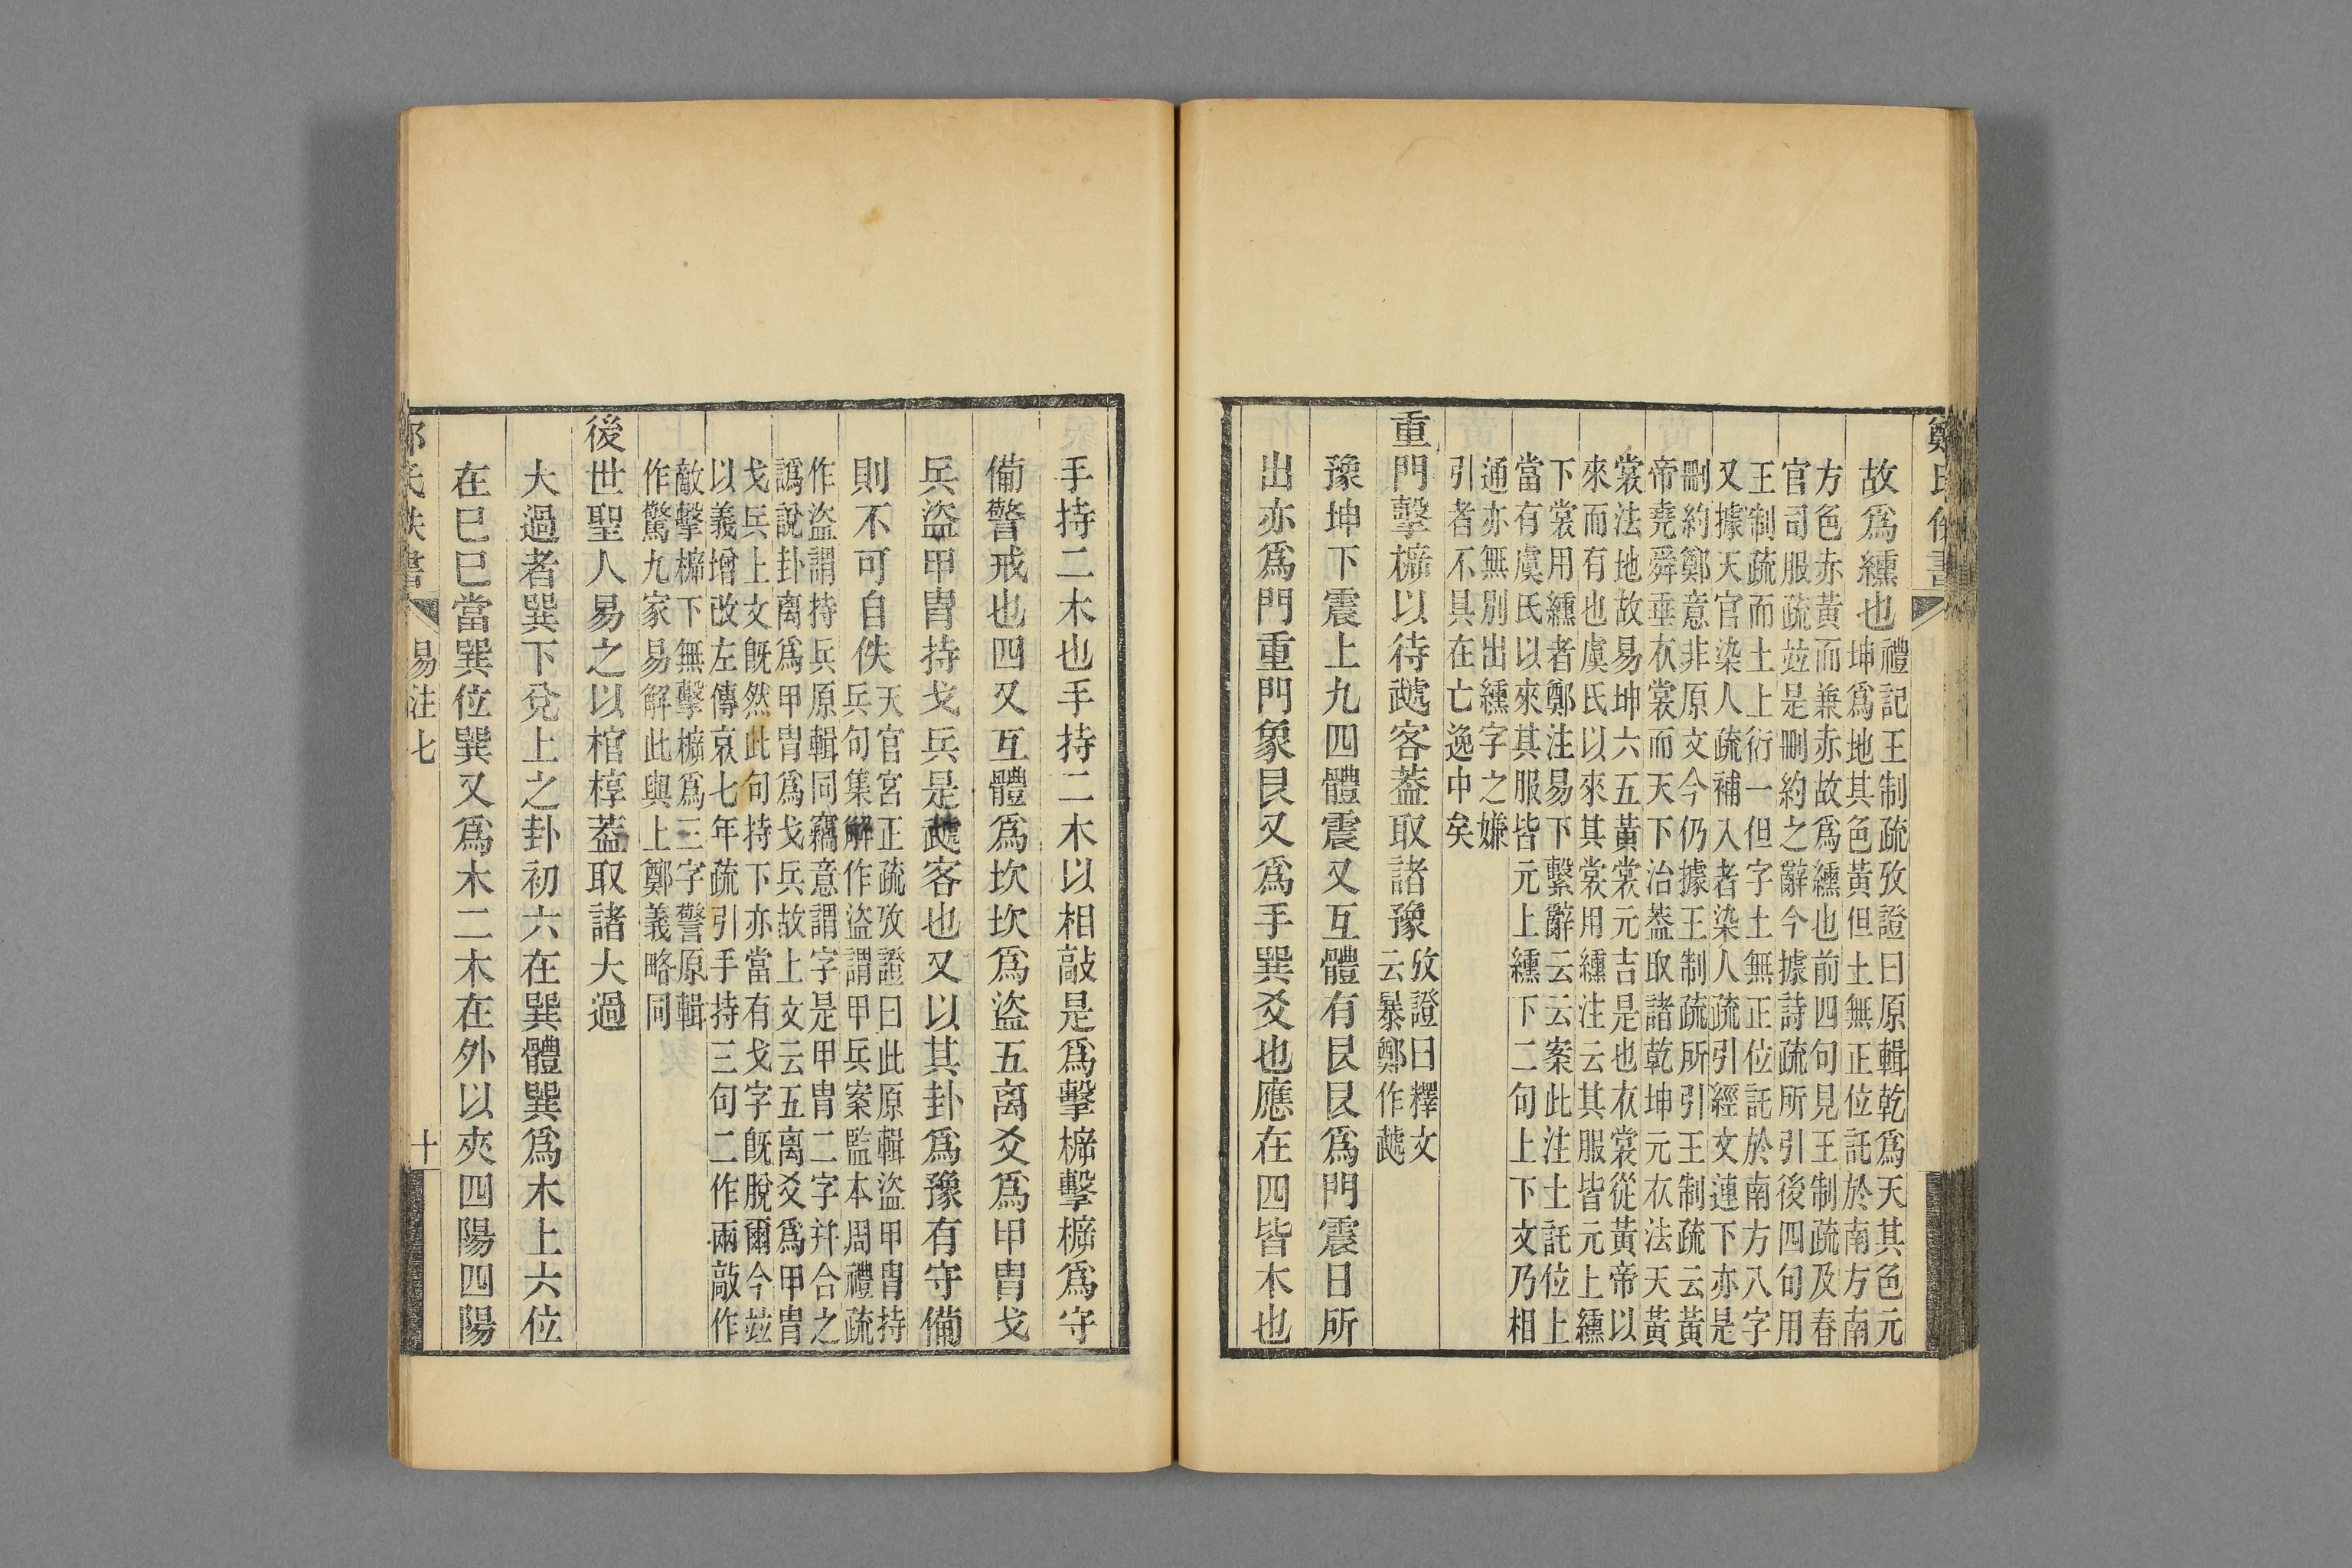 鄭氏佚書
故爲纁也禮記王制疏攷證曰原輯乾爲天其色元
坤爲地其色黃但土無正位託於南方南
方色赤黃而兼赤故爲纁也前四句見王制疏及春
官司服疏竝是刪約之辭今據詩疏所引後四句用
王制疏而土上衍一但字土無正位託於南方八字
又據天官染人疏補入者染人疏引經文連下亦是
刪約鄭意非原文今仍據王制疏所引王制疏云黃
帝堯舜垂衣裳而天下治蓋取諸乾坤元衣法天黃
裳法地故易坤六五黃裳元吉是也衣裳從黃帝以
來而有也虞氏以來其裳用纁注云其服皆元上纁
下裳用纁者鄭注易下繫辭云云案此注土託位上
當有虞氏以來其服皆元上纁下二句上下文乃相
通亦無別出纁字之嫌
引者不具在亡逸中矣
重門擊㯓以待虣客蓋取諸豫攷證曰釋文
云暴鄭作虣
豫坤下震上九四體震又互體有艮艮爲門震日所
出亦爲門重門象艮又爲手巽爻也應在四皆木也
手持二木也手持二木以相敲是爲擊㯓擊㯓爲守
備警戒也四又互體爲坎坎爲盜五离爻爲甲冑戈
兵盜甲冑持戈兵是虣客也又以其卦爲豫有守備
則不可自佚天官宮正疏攷證曰此原輯盜甲冑持
兵句集解作盜謂甲兵案監本周禮疏
作盜謂持兵原輯同竊意謂字是甲冑二字幷合之
譌說卦离爲甲冑爲戈兵故上文云五离爻爲甲冑
戈兵上文旣然此句持下亦當有戈字旣脫爾今竝
以義增改左傳哀七年疏引手持三句二作兩敲作
敵擊㯓下無擊㯓爲三字警原輯
作驚九家易解此與上鄭義略同
後世聖人易之以棺椁蓋取諸大過
大過者巽下兌上之卦初六在巽體巽爲木上六位
在巳巳當巽位巽又爲木二木在外以夾四陽四陽
鄭氏佚書
易注七
十